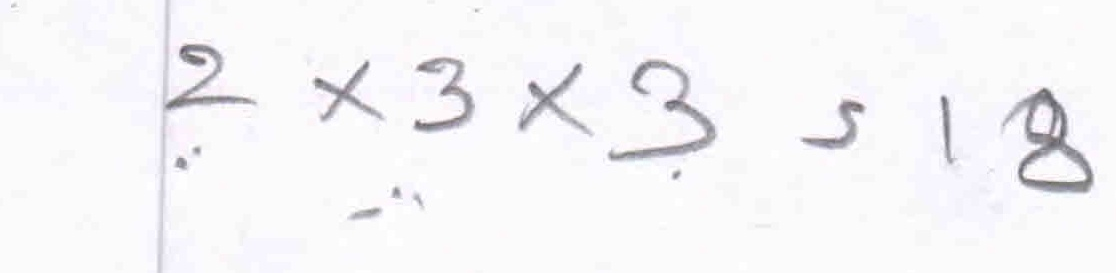 2 × 3 × 3 = 18